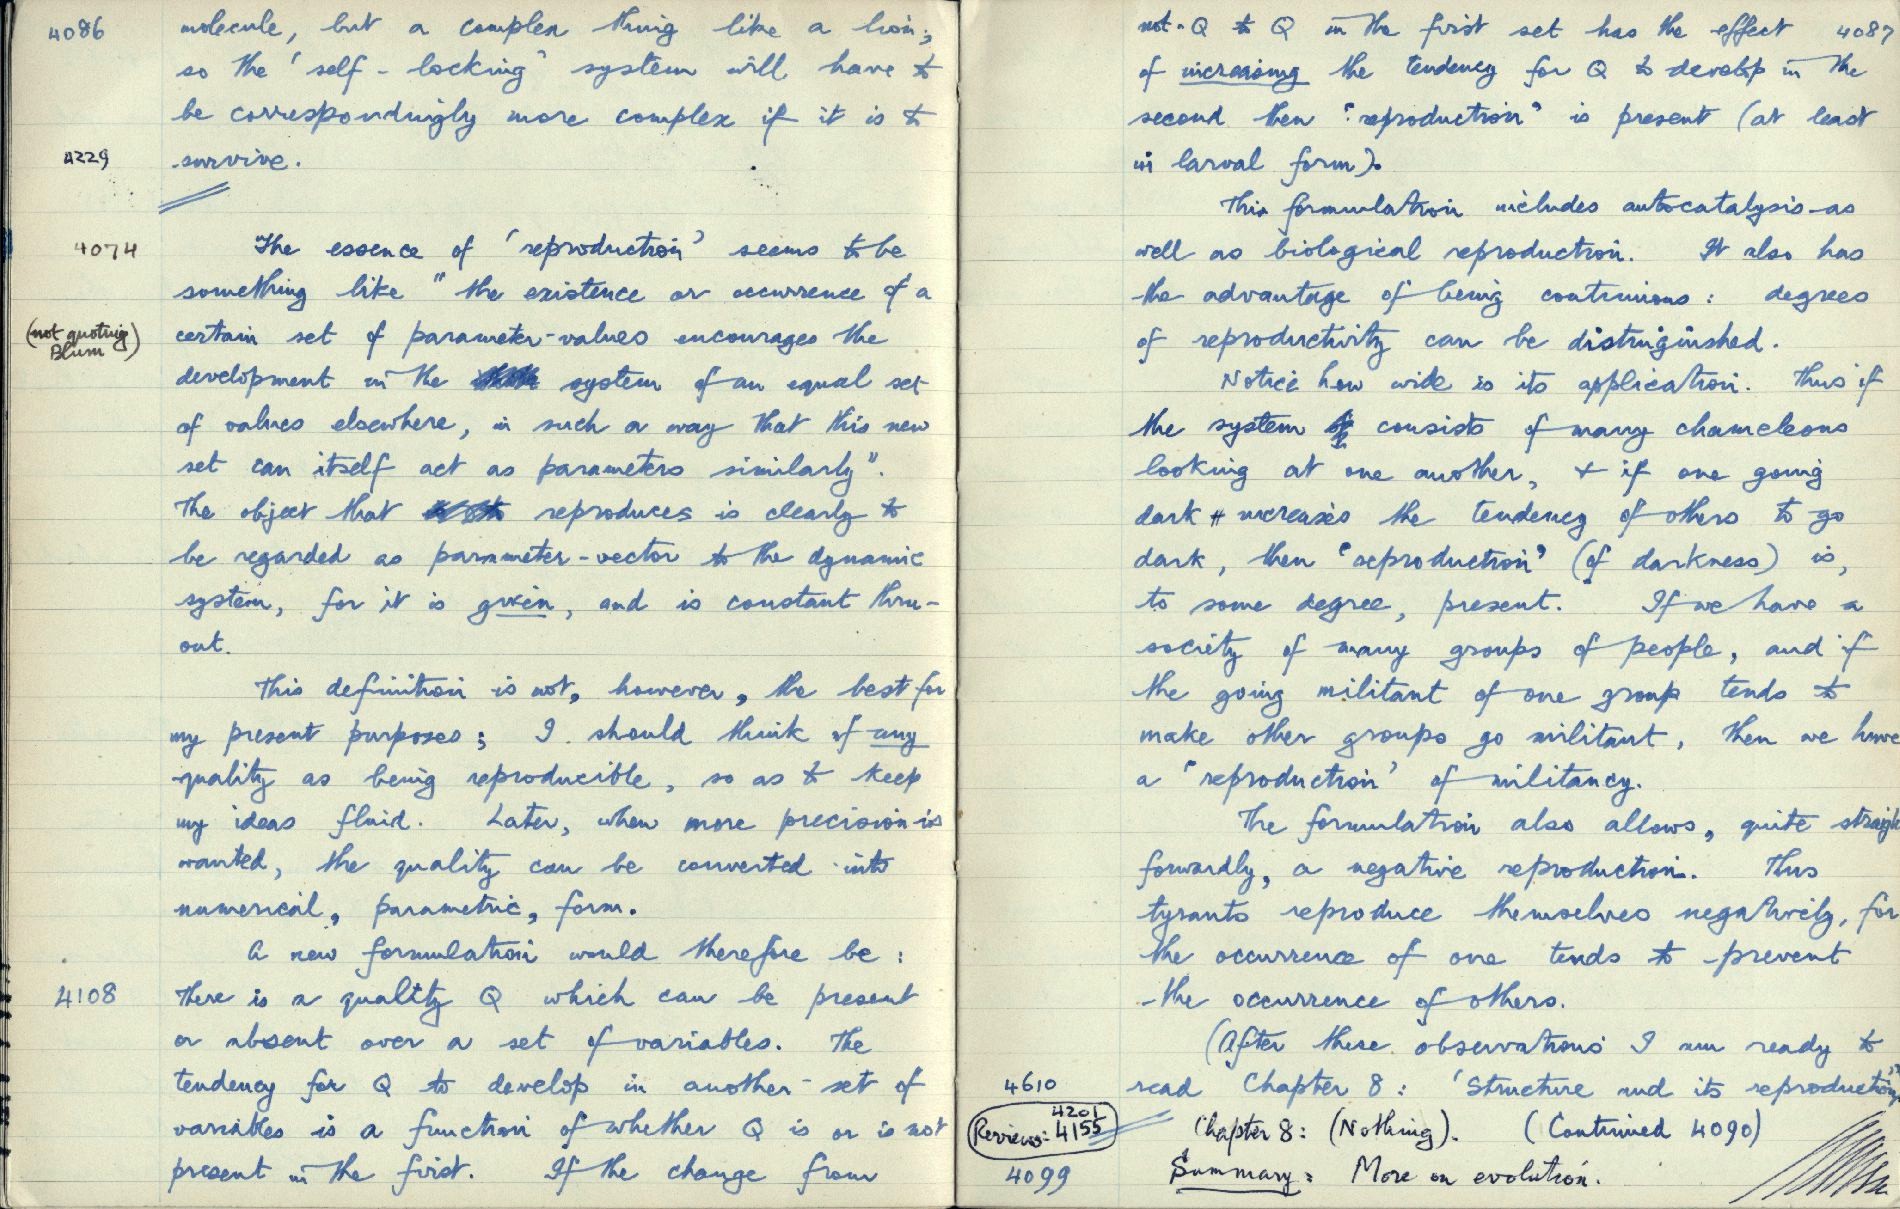 4086
molecule, but a complex thing like a lion;
so the 'self-locking' system will have to
be correspondingly more complex if it is to
4229
survive.
4074
The essence of 'reproduction' seems to be
something like "the existence or occurrence of a
(not quoting Blum)
certain set of parameter-values encourages the
development in the system of an equal set
of values elsewhere, in such a way that this new
set can itself act as parameters similarly".
The object that reproduces is clearly to
be regarded as parameter-vector to the dynamic
system, for it is given, and is constant thru-
out.
This definition is not, however, the best for
my present purposes; I should think of any
quality as being reproducible, so as to keep
my ideas fluid. Later, when more precision is
wanted, the quality can be converted into
numerical, parametric, form.
A new formulation would therefore be:
4108
There is a quality Q which can be present
or absent over a set of variables. The
tendency for Q to develop in another set of
variables is a function of whether Q is or is not
present in the first. If the change from
not-Q to Q in the first set has the effect
4087
of increasing the tendency for Q to develop in the
second then "reproduction" is present (at least
in larval form).
This formulation includes autocatalysis as
well as biological reproduction. It also has
the advantage of being continuous: degrees
of reproductivity can be distinguished.
Notice how wide is its application. Thus if
the system consists of many chameleons
looking at one another, + if one going
dark increases the tendency of others to go
dark, then "reproduction" (of darkness) is,
to some degree, present. If we have a
society of many groups of people, and if
the going militant of one group tends to
make other groups go militant, then we have
a 'reproduction' of militancy.
The formulation also allows, quite straigh
forwardly, a negative reproduction. Thus
tyrants reproduce themselves negatively, for
the occurrence of one tends to prevent
the occurrence of others.
(After these observations I am ready to
4610
read Chapter 8: 'Structure and its reproduction'.
Reviews: 4201 4155
Chapter 8: (Nothing). (Continued 4090)
4099
Summary: More on evolution.